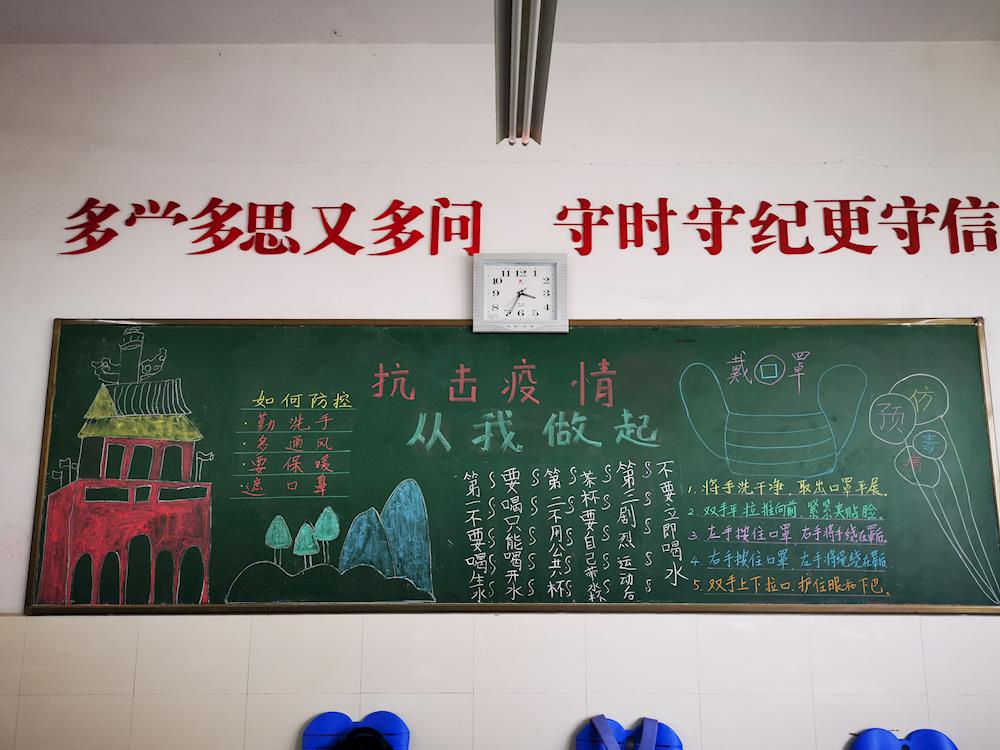 多学多思又多问 守时守纪更守信
11 12 1
10 2
9 3
8 4
7 6 5
抗击疫情
从我做起
如何防控
·勤洗手
·多通风
·要保暖
·遮口鼻
第一不要喝生水
要喝只能喝开水
第二不用公共杯
茶杯要自己带
第三剧烈运动后
不要立即喝水
戴口罩
1. 将手洗干净，取出口罩平展。
2. 双手平拉推向前，紧紧夹贴脸。
3. 左手按住口罩，右手将绳绕在
4. 右手按住口罩 左手将绳绕在
5. 双手上下拉口，护住眼和下巴。
预仿毒病